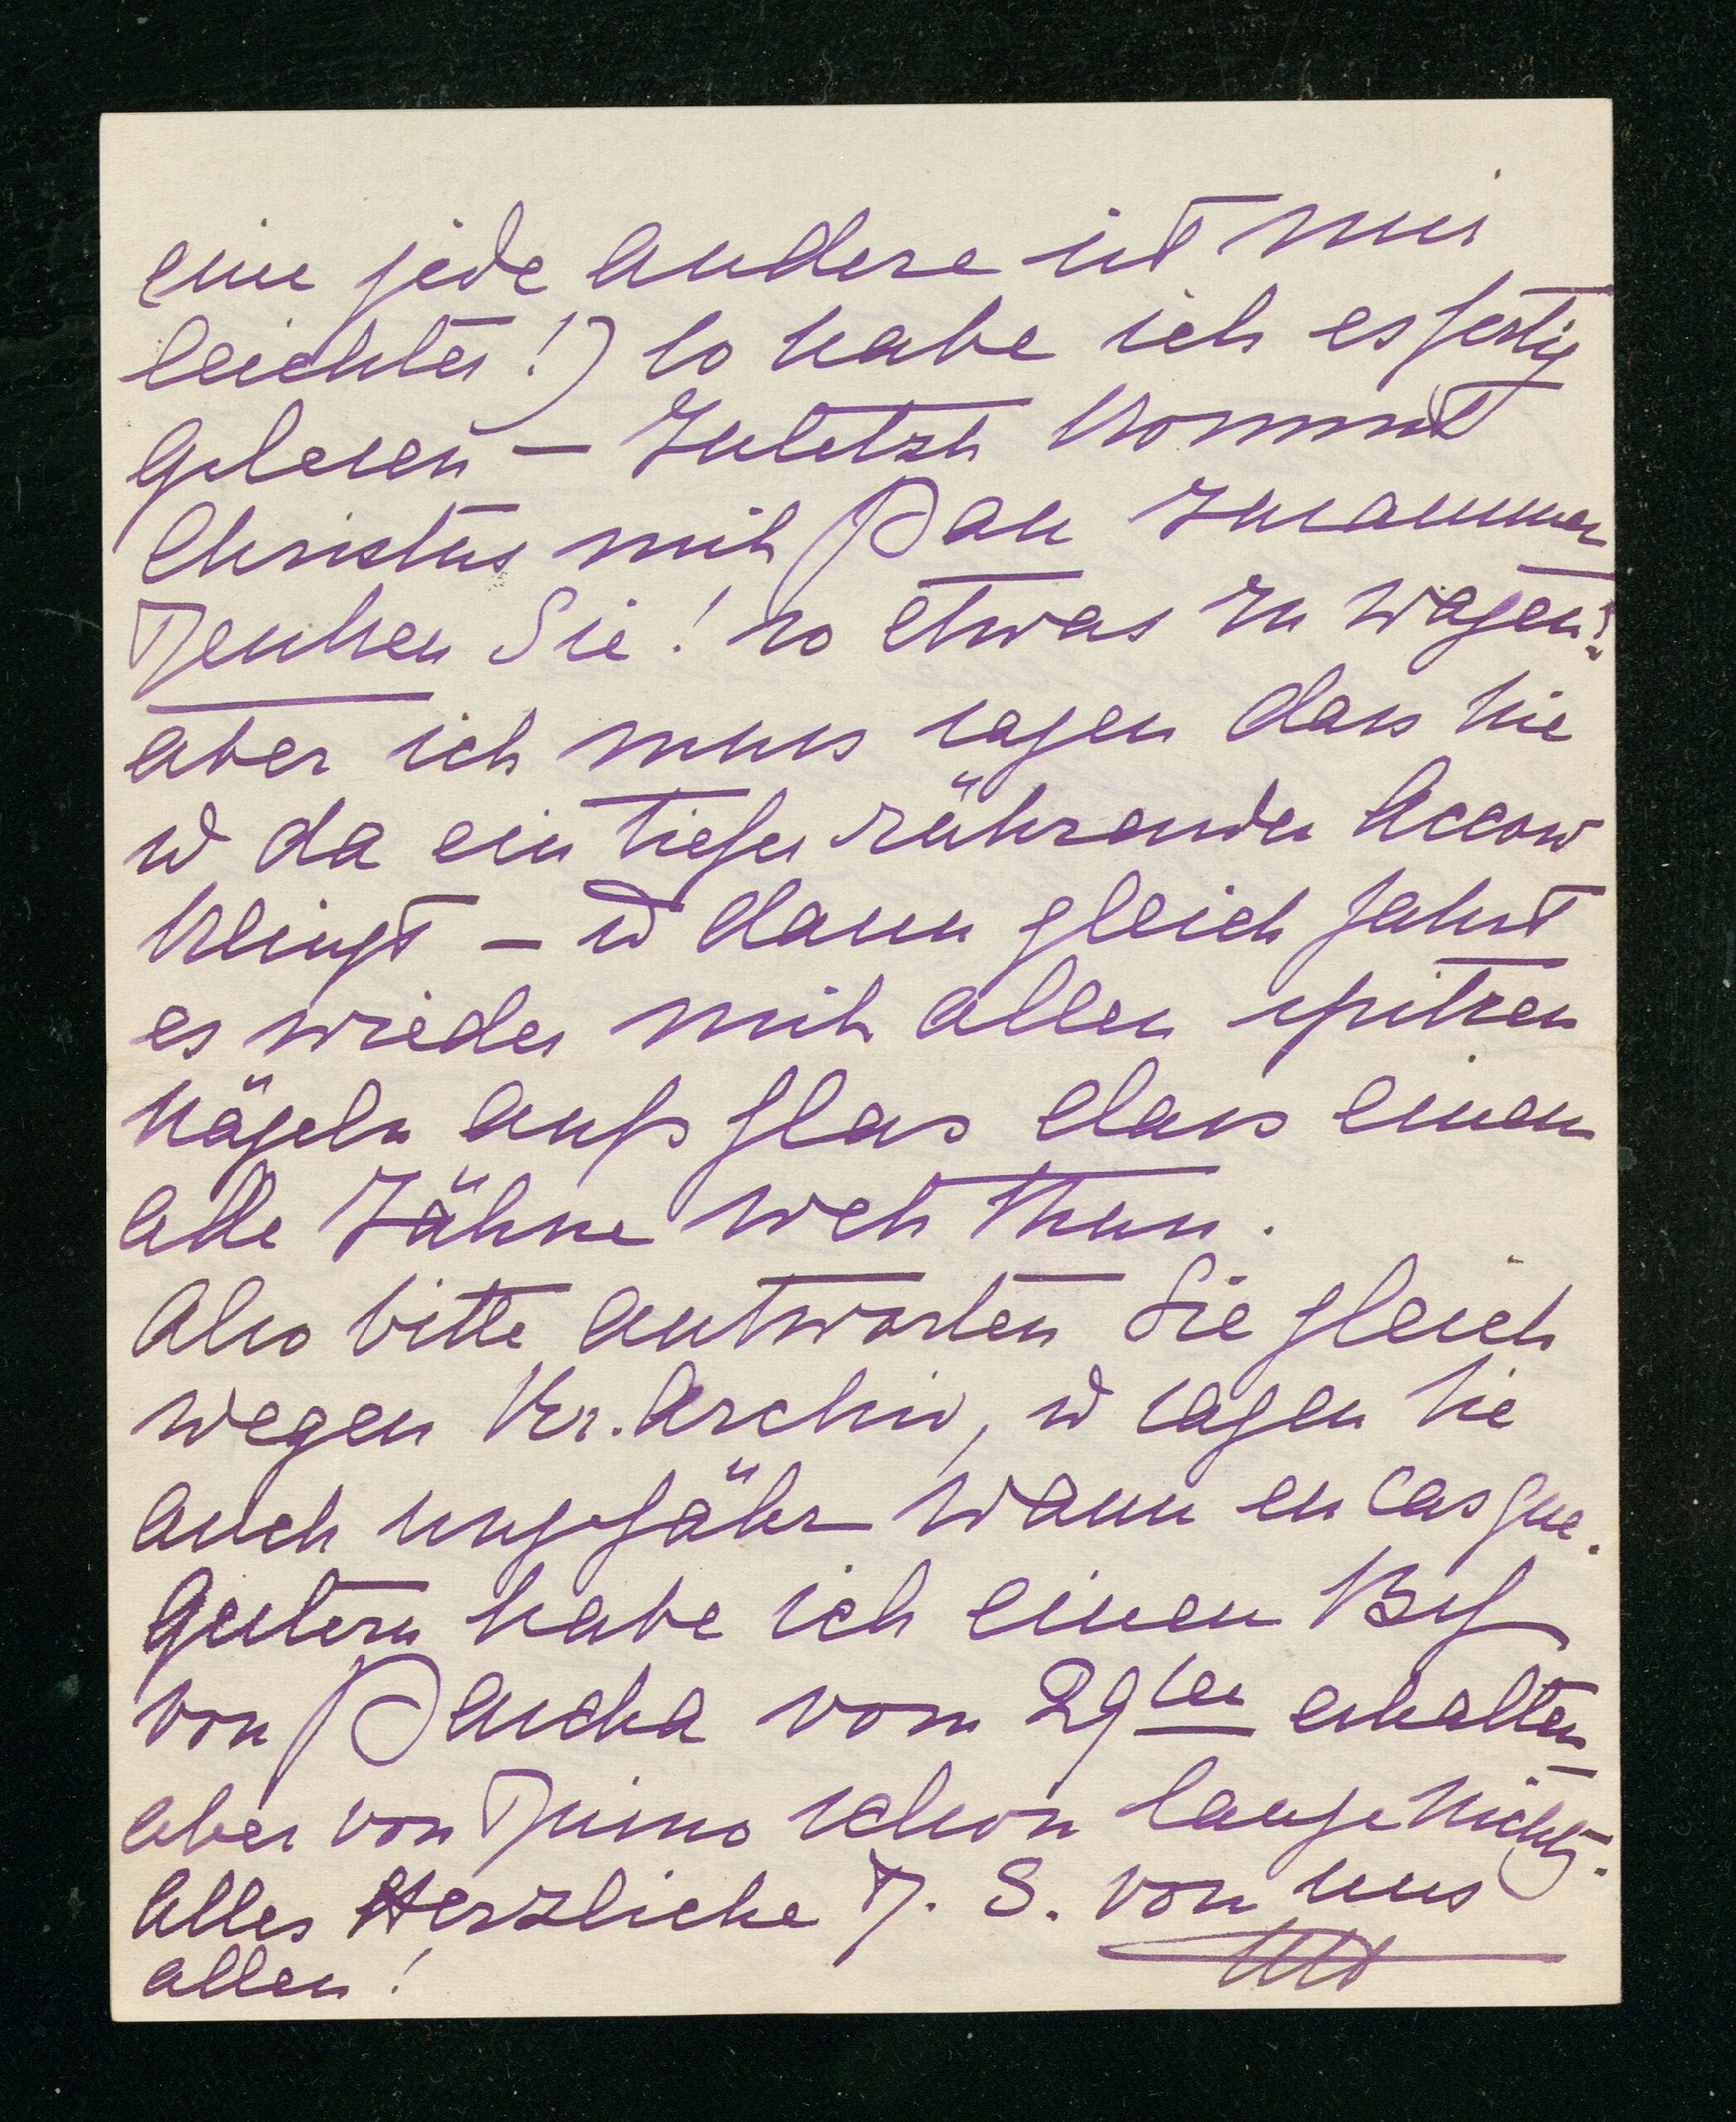 eine jede andere ist mir
leichter!) so habe ich es fertig
gelesen – Zuletzt kommt
Christus mit Pan zusammen
Denken Sie! so etwas zu wagen!
aber ich muss sagen dass hie
u da ein tiefer rührender Accord
klingt – u dann gleich fahrt
es wieder mit allen spitzen
Nägeln aufs Glas dass einen
alle Zähne weh thun.
Also bitte antworten Sie gleich
wegen Kr. Archiv, u sagen Sie
auch ungefähr wann en cas que.
Gestern habe ich einen Bf
von Pascha vom 29ten erhalten
aber von Duino schon lange nichts.
Alles Herzliche D. S. von uns
allen! MT